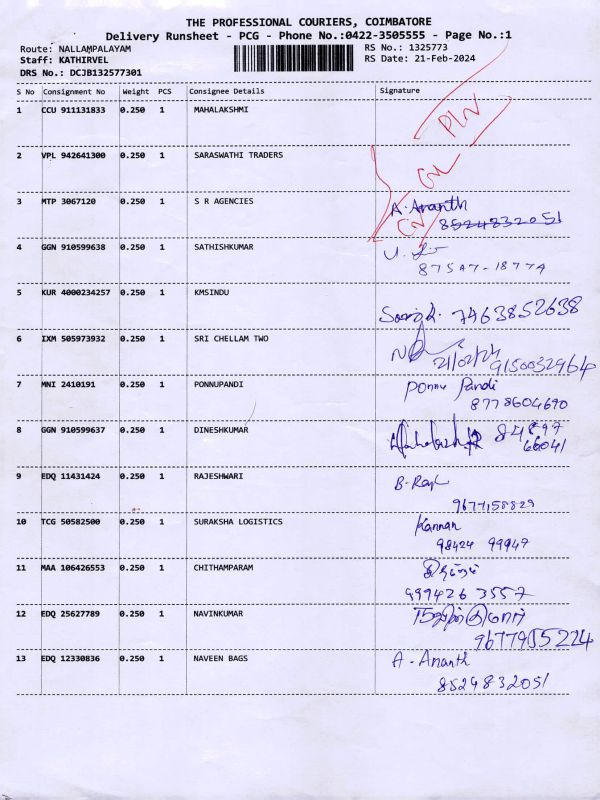 THE PROFESSIONAL COURIERS, COIMBATORE
Delivery Runsheet - PCG - Phone No.:0422-3505555 - Page No.:1
Route: NALLAMPALAYAM RS No.: 1325773
Staff: KATHIRVEL RS Date: 21-Feb-2024
DRS No.: DCJB132577301
S No Consignment No Weight PCS Consignee Details Signature
1 CCU 911131833 0.250 1 MAHALAKSHMI
2 VPL 942641300 0.250 1 SARASWATHI TRADERS
3 MTP 3067120 0.250 1 S R AGENCIES A. Ananth
8524832051
4 GGN 910599638 0.250 1 SATHISHKUMAR
87547-18774
5 KUR 4000234257 0.250 1 KMSINDU 7463852638
6 IXM 505973932 0.250 1 SRI CHELLAM TWO
21/02/24 9150032964
7 MNI 2410191 0.250 1 PONNUPANDI Ponnu Pandi
8778604690
8 GGN 910599637 0.250 1 DINESHKUMAR
66041
9 EDQ 11431424 0.250 1 RAJESHWARI
10 TCG 50582500 0.250 1 SURAKSHA LOGISTICS Kannan
98424 99947
11 MAA 106426553 0.250 1 CHITHAMPARAM
999426 3557
12 EDQ 25627789 0.250 1 NAVINKUMAR
13 EDQ 12330836 0.250 1 NAVEEN BAGS A - Ananth
8524832051